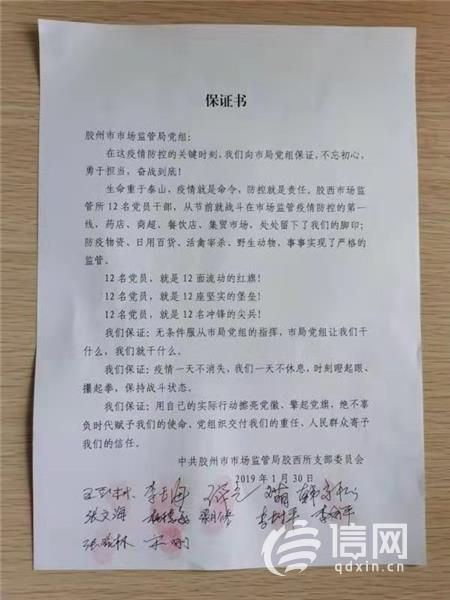 保证书
胶州市市场监管局党组：
在这疫情防控的关键时刻，我们向市局党组保证，不忘初心，
勇于担当，奋战到底！
生命重于泰山，疫情就是命令，防控就是责任。胶西市场监
管所12名党员干部，从节前就战斗在市场监管疫情防控的第一
线，药店、商超、餐饮店、集贸市场，处处留下了我们的脚印；
防疫物资、日用百货、活禽宰杀、野生动物，事事实现了严格的
监管。
12名党员，就是12面流动的红旗！
12名党员，就是12座坚实的堡垒！
12名党员，就是12名冲锋的尖兵！
我们保证：无条件服从市局党组的指挥，市局党组让我们干
什么，我们就干什么。
我们保证：疫情一天不消失，我们一天不休息，时刻瞪起眼、
攥起拳，保持战斗状态。
我们保证：用自己的实际行动擦亮党徽、擎起党旗，绝不辜
负时代赋予我们的使命、党组织交付我们的重任、人民群众寄予
我们的信任。
中共胶州市市场监管局胶西所支部委员会
2019年1月30日
张文海
宋刚
信网
qdxin.cn